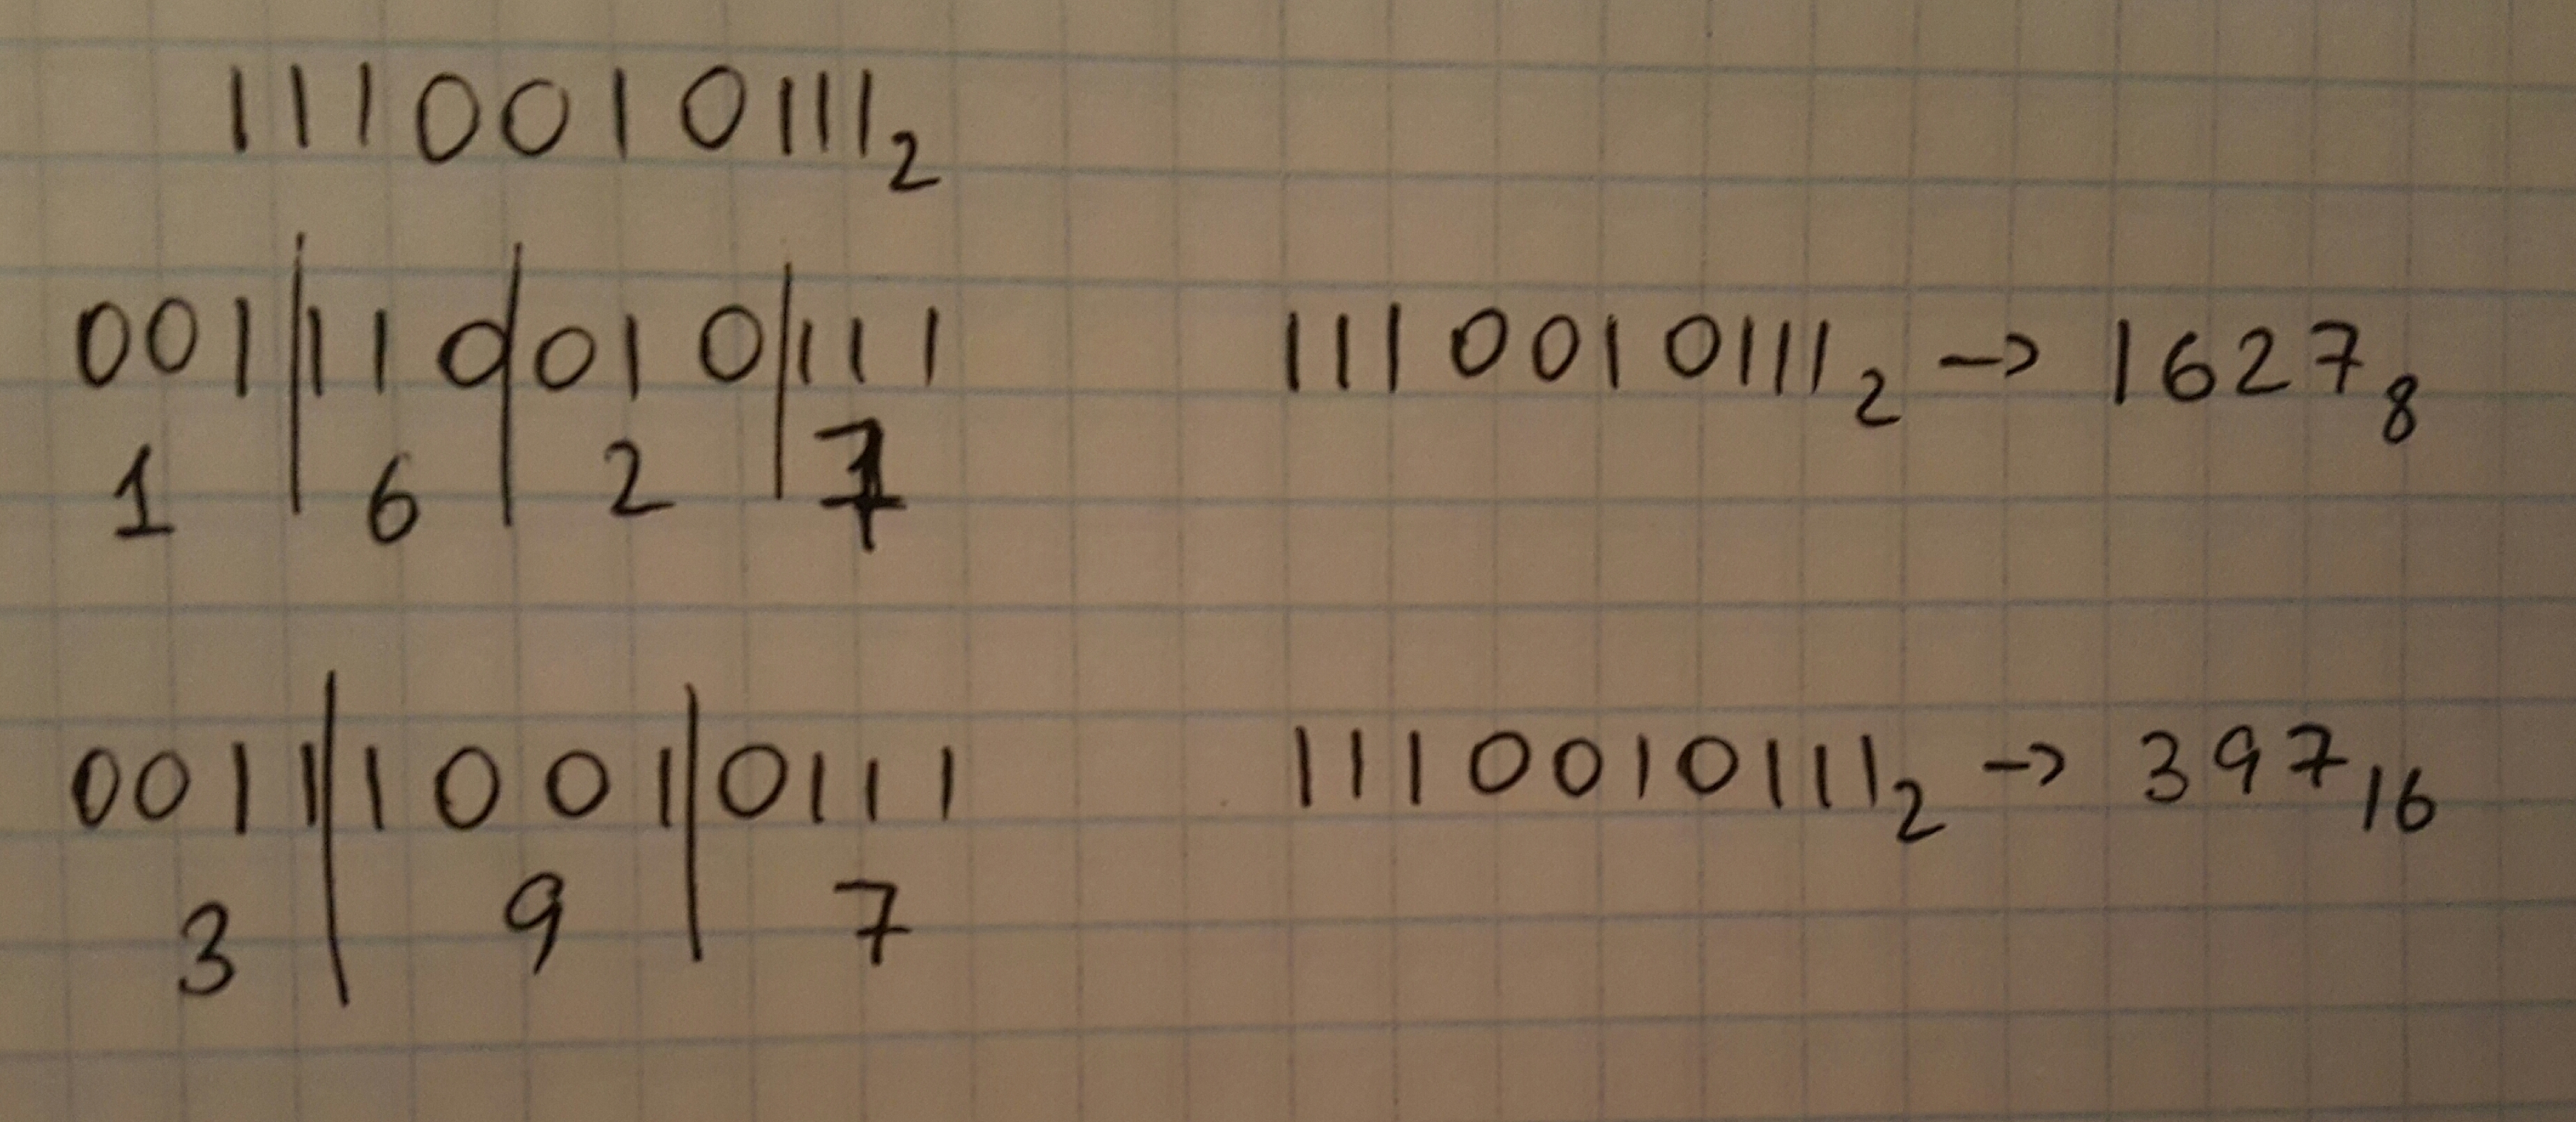 1110010111₂
001|110|010|111 1110010111₂ -> 1627₈
1|6|2|7
0011|1001|0111 1110010111₂ -> 397₁₆
3|9|7